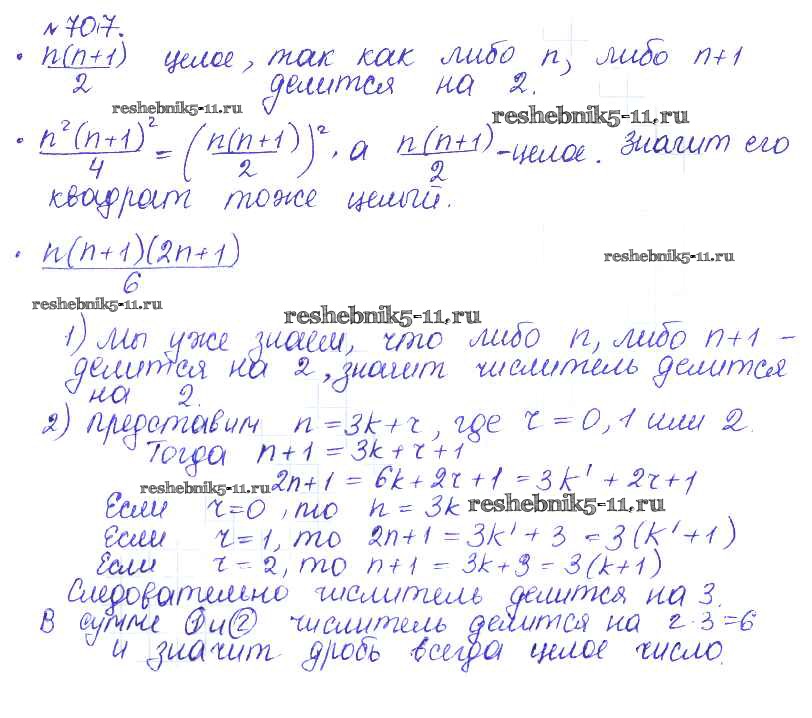 № 707.
• n(n+1)/2 целое, так как либо n, либо n+1
делится на 2.
reshebnik5-11.ru
reshebnik5-11.ru
• n²(n+1)²/4 = (n(n+1)/2)², а n(n+1)/2 - целое. Значит его
квадрат тоже целый.
• n(n+1)(2n+1)/6
reshebnik5-11.ru
reshebnik5-11.ru
reshebnik5-11.ru
1) Мы уже знаем, что либо n, либо n+1 -
делится на 2, значит числитель делится
на 2.
2) Представим n = 3k+r, где r = 0, 1 или 2.
Тогда n+1 = 3k+r+1
2n+1 = 6k+2r+1 = 3k'+2r+1
reshebnik5-11.ru
Если r=0, то n = 3k
reshebnik5-11.ru
Если r=1, то 2n+1 = 3k'+3 = 3(k'+1)
Если r=2, то n+1 = 3k+3 = 3(k+1)
Следовательно числитель делится на 3.
В сумме ① и ② числитель делится на 2·3=6
и значит дробь всегда целое число.